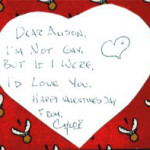 DEAR ALISON,
I'M NOT GAY,
BUT IF I WERE,
I'D LOVE YOU.
HAPPY VALENTINES DAY
FROM,